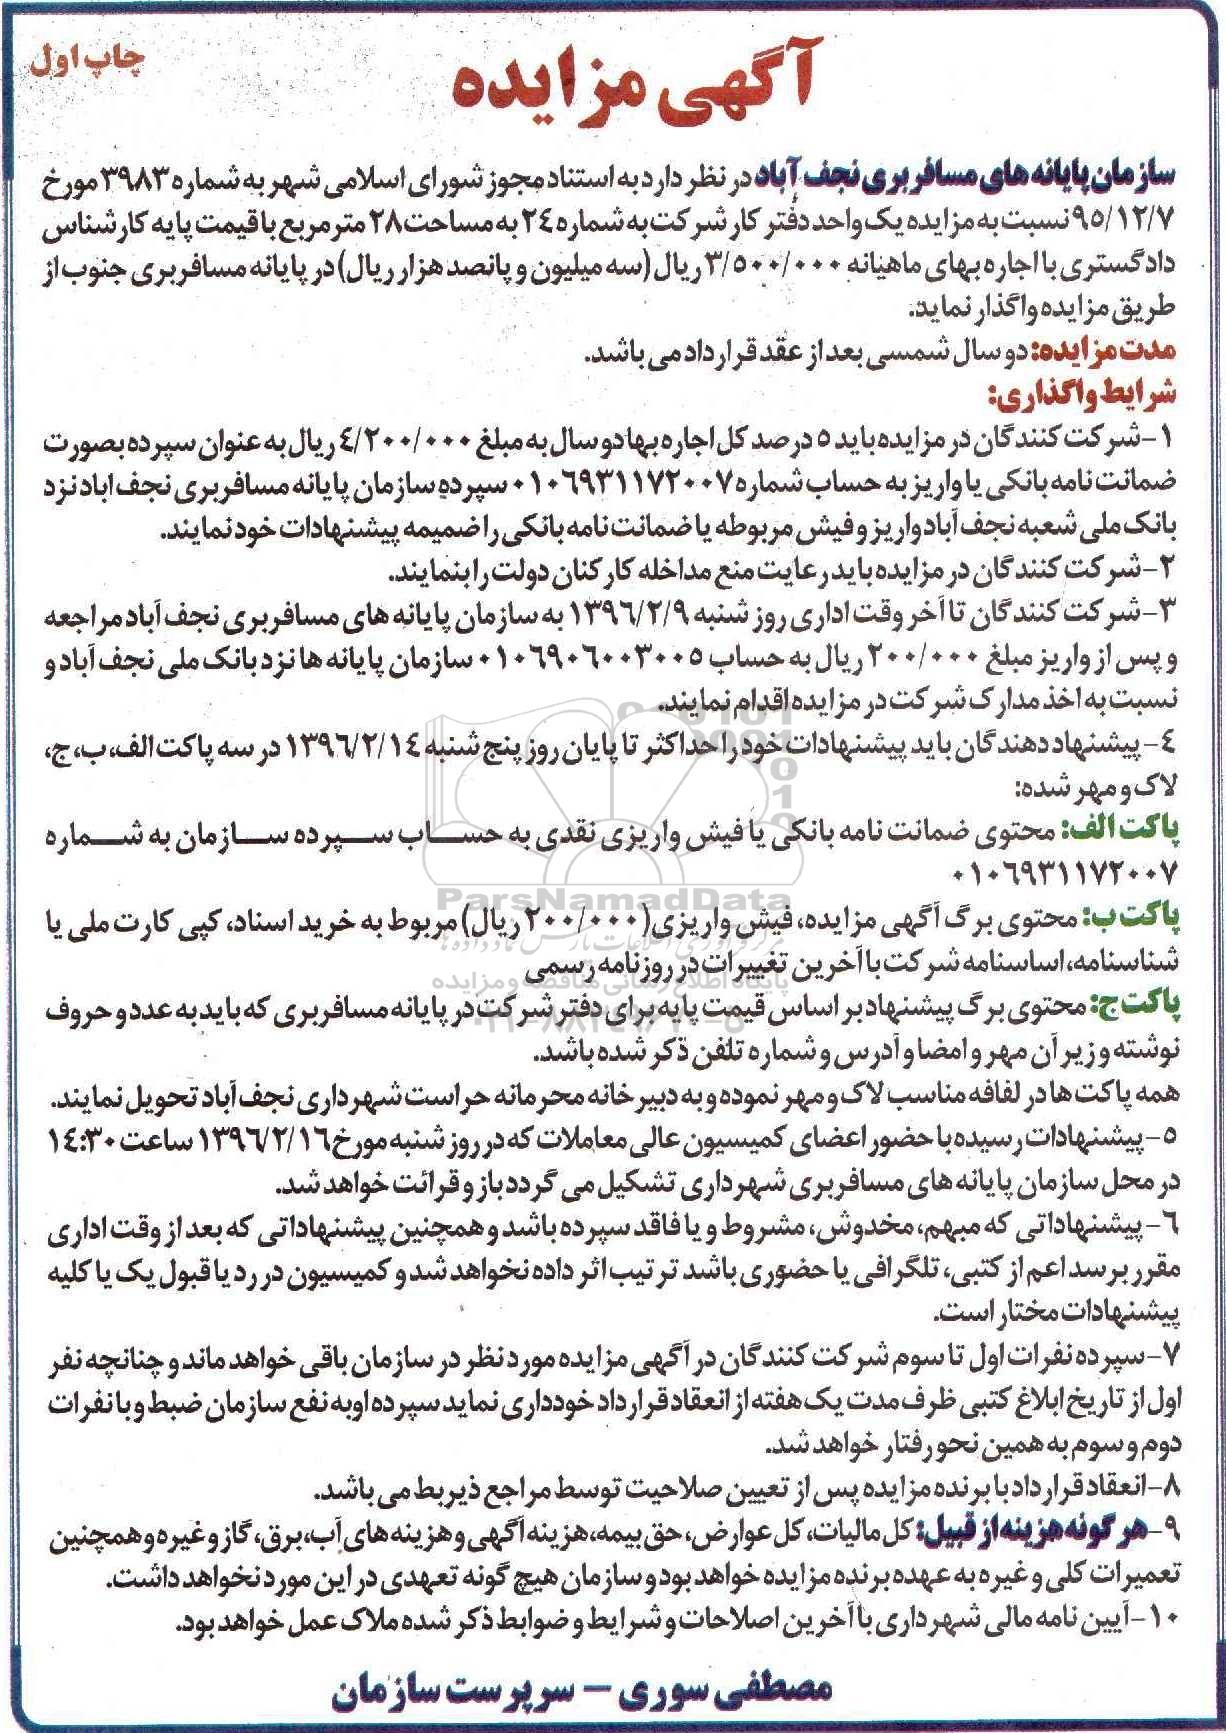 چاپ اول
آگهی مزایده
سازمان پایانه های مسافربری نجف آباد در نظر دارد به استناد مجوز شورای اسلامی شهر به شماره ۳۹۸۳ مورخ
۹۵/۱۲/۷ نسبت به مزایده یک واحد دفتر کار شرکت به شماره ۲۴ به مساحت ۲۸ متر مربع با قیمت پایه کارشناس
دادگستری با اجاره بهای ماهیانه ۳/۵۰۰/۰۰۰ ریال (سه میلیون و پانصد هزار ریال) در پایانه مسافربری جنوب از
طریق مزایده واگذار نماید.
مدت مزایده: دو سال شمسی بعد از عقد قرارداد می باشد.
شرایط واگذاری:
۱- شرکت کنندگان در مزایده باید ۵ درصد کل اجاره بها دو سال به مبلغ ۴/۲۰۰/۰۰۰ ریال به عنوان سپرده بصورت
ضمانت نامه بانکی یا واریز به حساب شماره ۰۱۰۶۹۳۱۱۷۲۰۰۷ سپرده سازمان پایانه مسافربری نجف اباد نزد
بانک ملی شعبه نجف آباد واریز و فیش مربوطه یا ضمانت نامه بانکی را ضمیمه پیشنهادات خود نمایند.
۲- شرکت کنندگان در مزایده باید رعایت منع مداخله کارکنان دولت را بنمایند.
۳- شرکت کنندگان تا آخر وقت اداری روز شنبه ۱۳۹۶/۲/۹ به سازمان پایانه های مسافربری نجف آباد مراجعه
و پس از واریز مبلغ ۲۰۰/۰۰۰ ریال به حساب ۰۱۰۶۹۰۶۰۰۳۰۰۵ سازمان پایانه ها نزد بانک ملی نجف آباد و
نسبت به اخذ مدارک شرکت در مزایده اقدام نمایند.
۴- پیشنهاد دهندگان باید پیشنهادات خود را حداکثر تا پایان روز پنج شنبه ۱۳۹۶/۲/۱۴ در سه پاکت الف، ب، ج،
لاک و مهر شده:
پاکت الف: محتوی ضمانت نامه بانکی یا فیش واریزی نقدی به حساب سپرده سازمان به شماره
۰۱۰۶۹۳۱۱۷۲۰۰۷
ParsNamadData
پاکت ب: محتوی برگ آگهی مزایده، فیش واریزی (۲۰۰/۰۰۰ ریال) مربوط به خرید اسناد، کپی کارت ملی یا
شناسنامه، اساسنامه شرکت با آخرین تغییرات در روزنامه رسمی
پایگاه اطلاع رسانی مناقصه و مزایده
پاکت ج: محتوی برگ پیشنهاد بر اساس قیمت پایه برای دفتر شرکت در پایانه مسافربری که باید به عدد و حروف
نوشته و زیر آن مهر و امضا و آدرس و شماره تلفن ذکر شده باشد.
همه پاکت ها در لفافه مناسب لاک و مهر نموده و به دبیرخانه محرمانه حراست شهرداری نجف آباد تحویل نمایند.
۵- پیشنهادات رسیده با حضور اعضای کمیسیون عالی معاملات که در روز شنبه مورخ ۱۳۹۶/۲/۱۶ ساعت ۱۴:۳۰
در محل سازمان پایانه های مسافربری شهرداری تشکیل می گردد باز و قرائت خواهد شد.
۶- پیشنهاداتی که مبهم، مخدوش، مشروط و یا فاقد سپرده باشد و همچنین پیشنهاداتی که بعد از وقت اداری
مقرر برسد اعم از کتبی، تلگرافی یا حضوری باشد ترتیب اثر داده نخواهد شد و کمیسیون در رد یا قبول یک یا کلیه
پیشنهادات مختار است.
۷- سپرده نفرات اول تا سوم شرکت کنندگان در آگهی مزایده مورد نظر در سازمان باقی خواهد ماند و چنانچه نفر
اول از تاریخ ابلاغ کتبی ظرف مدت یک هفته از انعقاد قرارداد خودداری نماید سپرده او به نفع سازمان ضبط و با نفرات
دوم و سوم به همین نحو رفتار خواهد شد.
۸- انعقاد قرارداد با برنده مزایده پس از تعیین صلاحیت توسط مراجع ذیربط می باشد.
۹- هر گونه هزینه از قبیل: کل مالیات، کل عوارض، حق بیمه، هزینه آگهی و هزینه های آب، برق، گاز و غیره و همچنین
تعمیرات کلی و غیره به عهده برنده مزایده خواهد بود و سازمان هیچ گونه تعهدی در این مورد نخواهد داشت.
۱۰- آیین نامه مالی شهرداری با آخرین اصلاحات و شرایط و ضوابط ذکر شده ملاک عمل خواهد بود.
مصطفی سوری - سرپرست سازمان